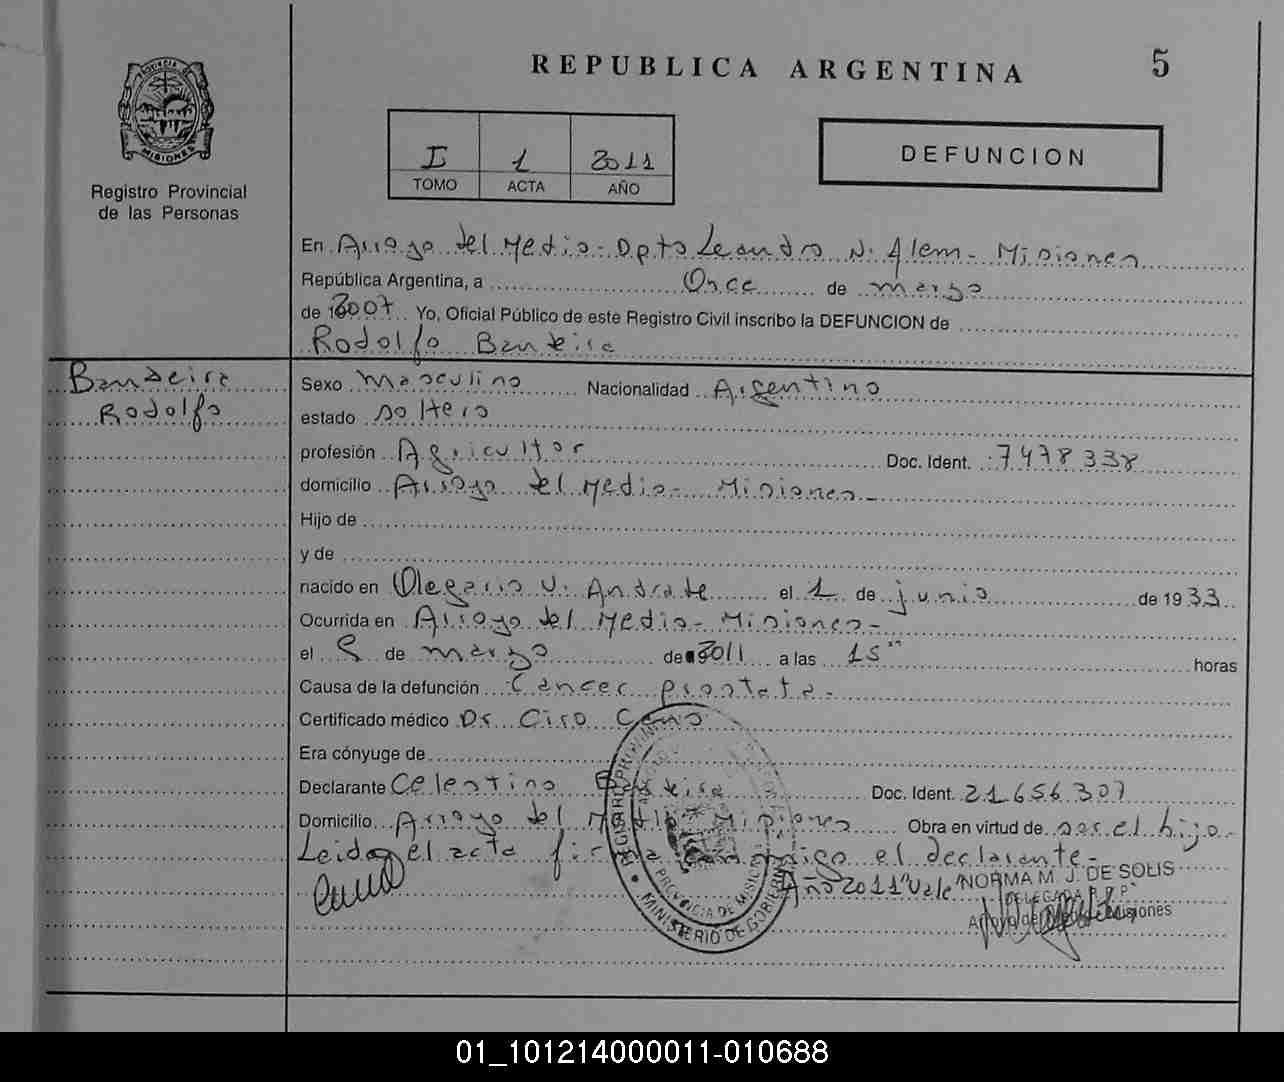 REPUBLICA ARGENTINA 5
PROVINCIA DE MISIONES
Registro Provincial
de las Personas
I 1 2011
TOMO ACTA AÑO
DEFUNCION
En Arroyo del Medio - Dpto Leandro N. Alem - Misiones
República Argentina, a Once de marzo
de 2007 Yo, Oficial Público de este Registro Civil inscribo la DEFUNCION de
Rodolfo Banteira
Bandeira
Rodolfo
Sexo Masculino Nacionalidad Argentino
estado soltero
profesión Agricultor Doc. Ident. 7478338
domicilio Arroyo del Medio - Misiones -
Hijo de
y de
nacido en Olegario V. Andrade el 1 de junio de 1933
Ocurrida en Arroyo del Medio - Misiones -
el 5 de marzo de 2011 a las 15 horas
Causa de la defunción Cancer prostata -
Certificado médico Dr Ciro Cano
Era cónyuge de
Declarante Celestino Doc. Ident. 21656307
Domicilio Arroyo del Medio Misiones Obra en virtud de ser el hijo -
Leida el acta firma conmigo el declarante -
Año 2011 "Vale" NORMA M. J. DE SOLIS
DELEGADA R.P.P.
Arroyo del Medio - Misiones
PROVINCIA DE MISIONES
MINISTERIO DE GOBIERNO
01_101214000011-010688